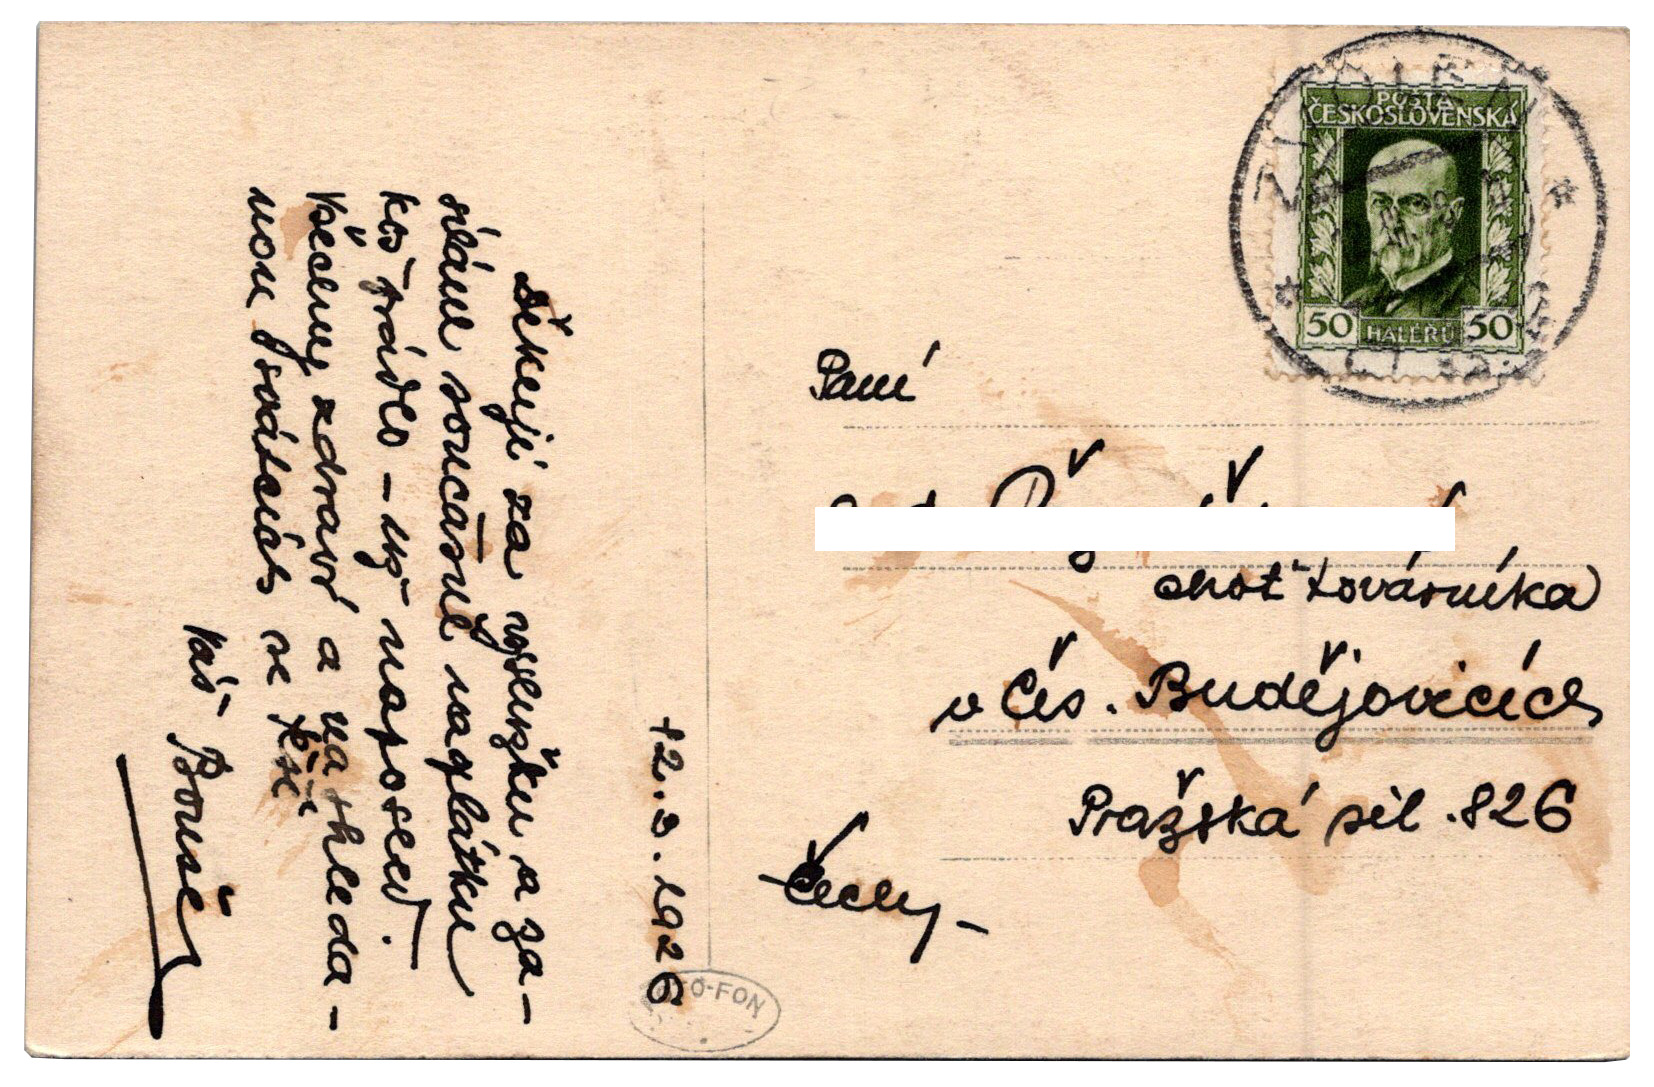 Děkuji za vyslužku a za-
sílám současně naplátku
ko prádlo - už naposled.
Všechny zdraví a na shleda-
nou o svátcích se těší
Váš Bouše
12.3.1926
POŠTA
ČESKOSLOVENSKÁ
50 HALÉŘŮ 50
Paní
choť továrníka
v Čes. Budějovicích
Pražská sil. 826
- Čechy -
FOTO-FON